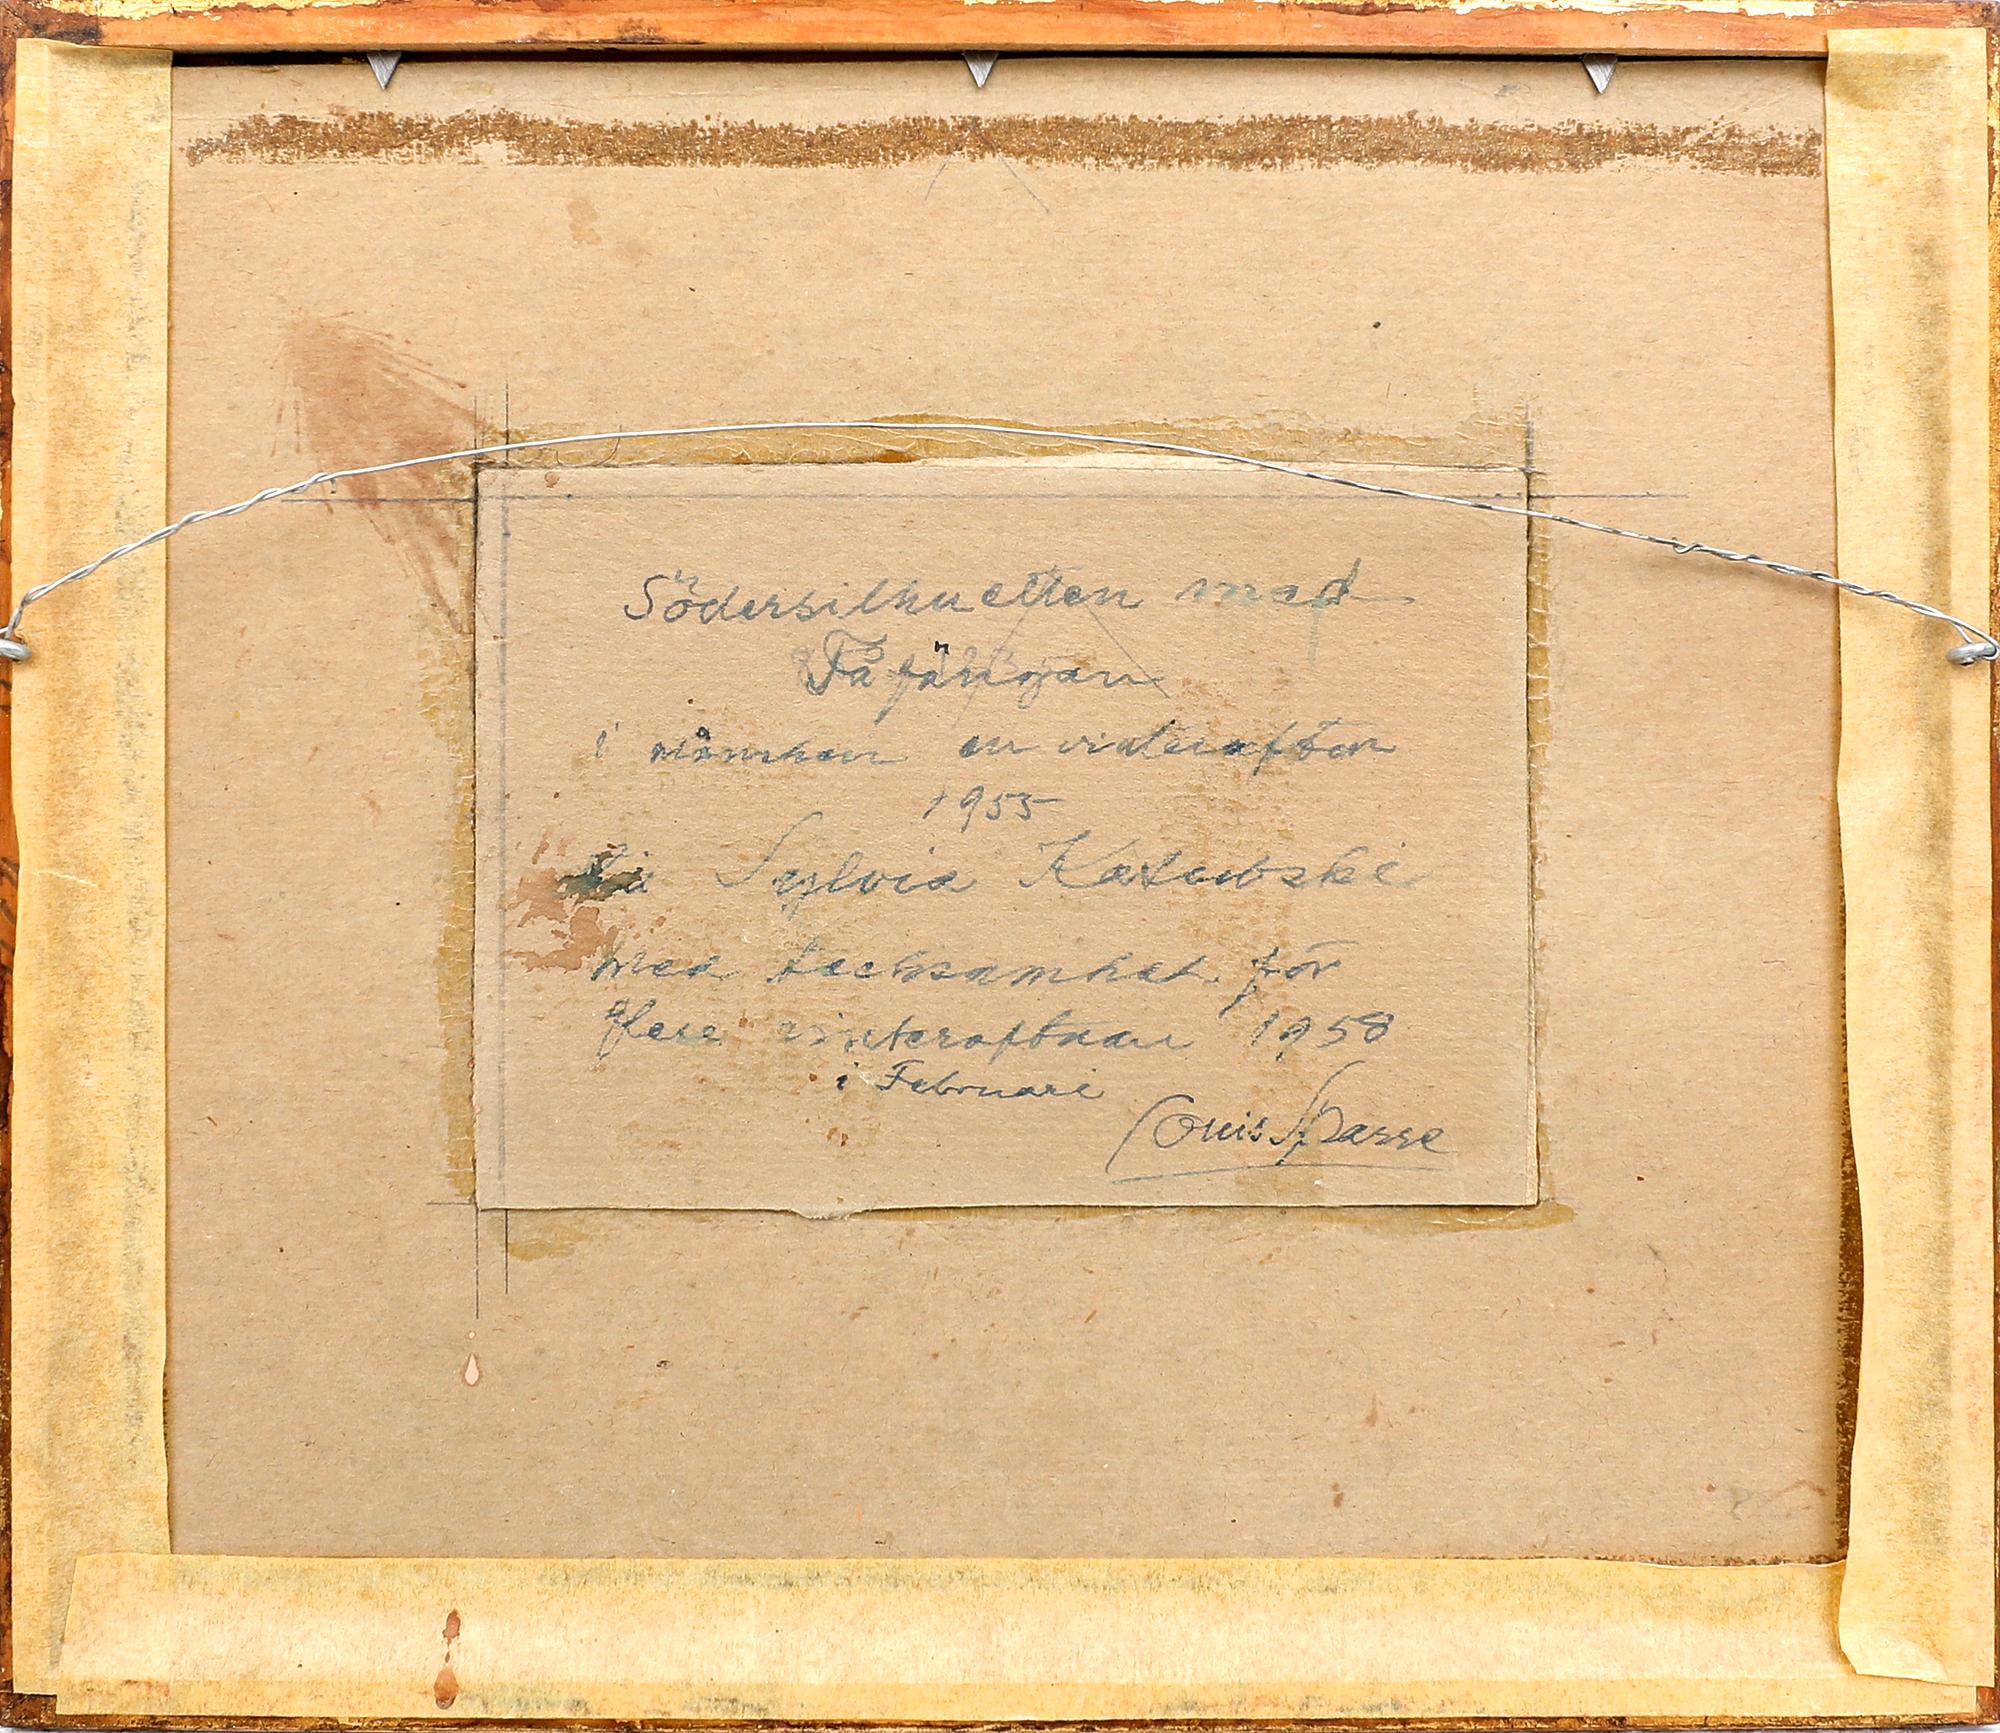 Södersilhuetten med
Fåfängan
i månsken en vinterafton
1955
Till Sylvia Katowski
med tacksamhet för
flere vinteraftnar 1958
i Februari
Louis Sparre